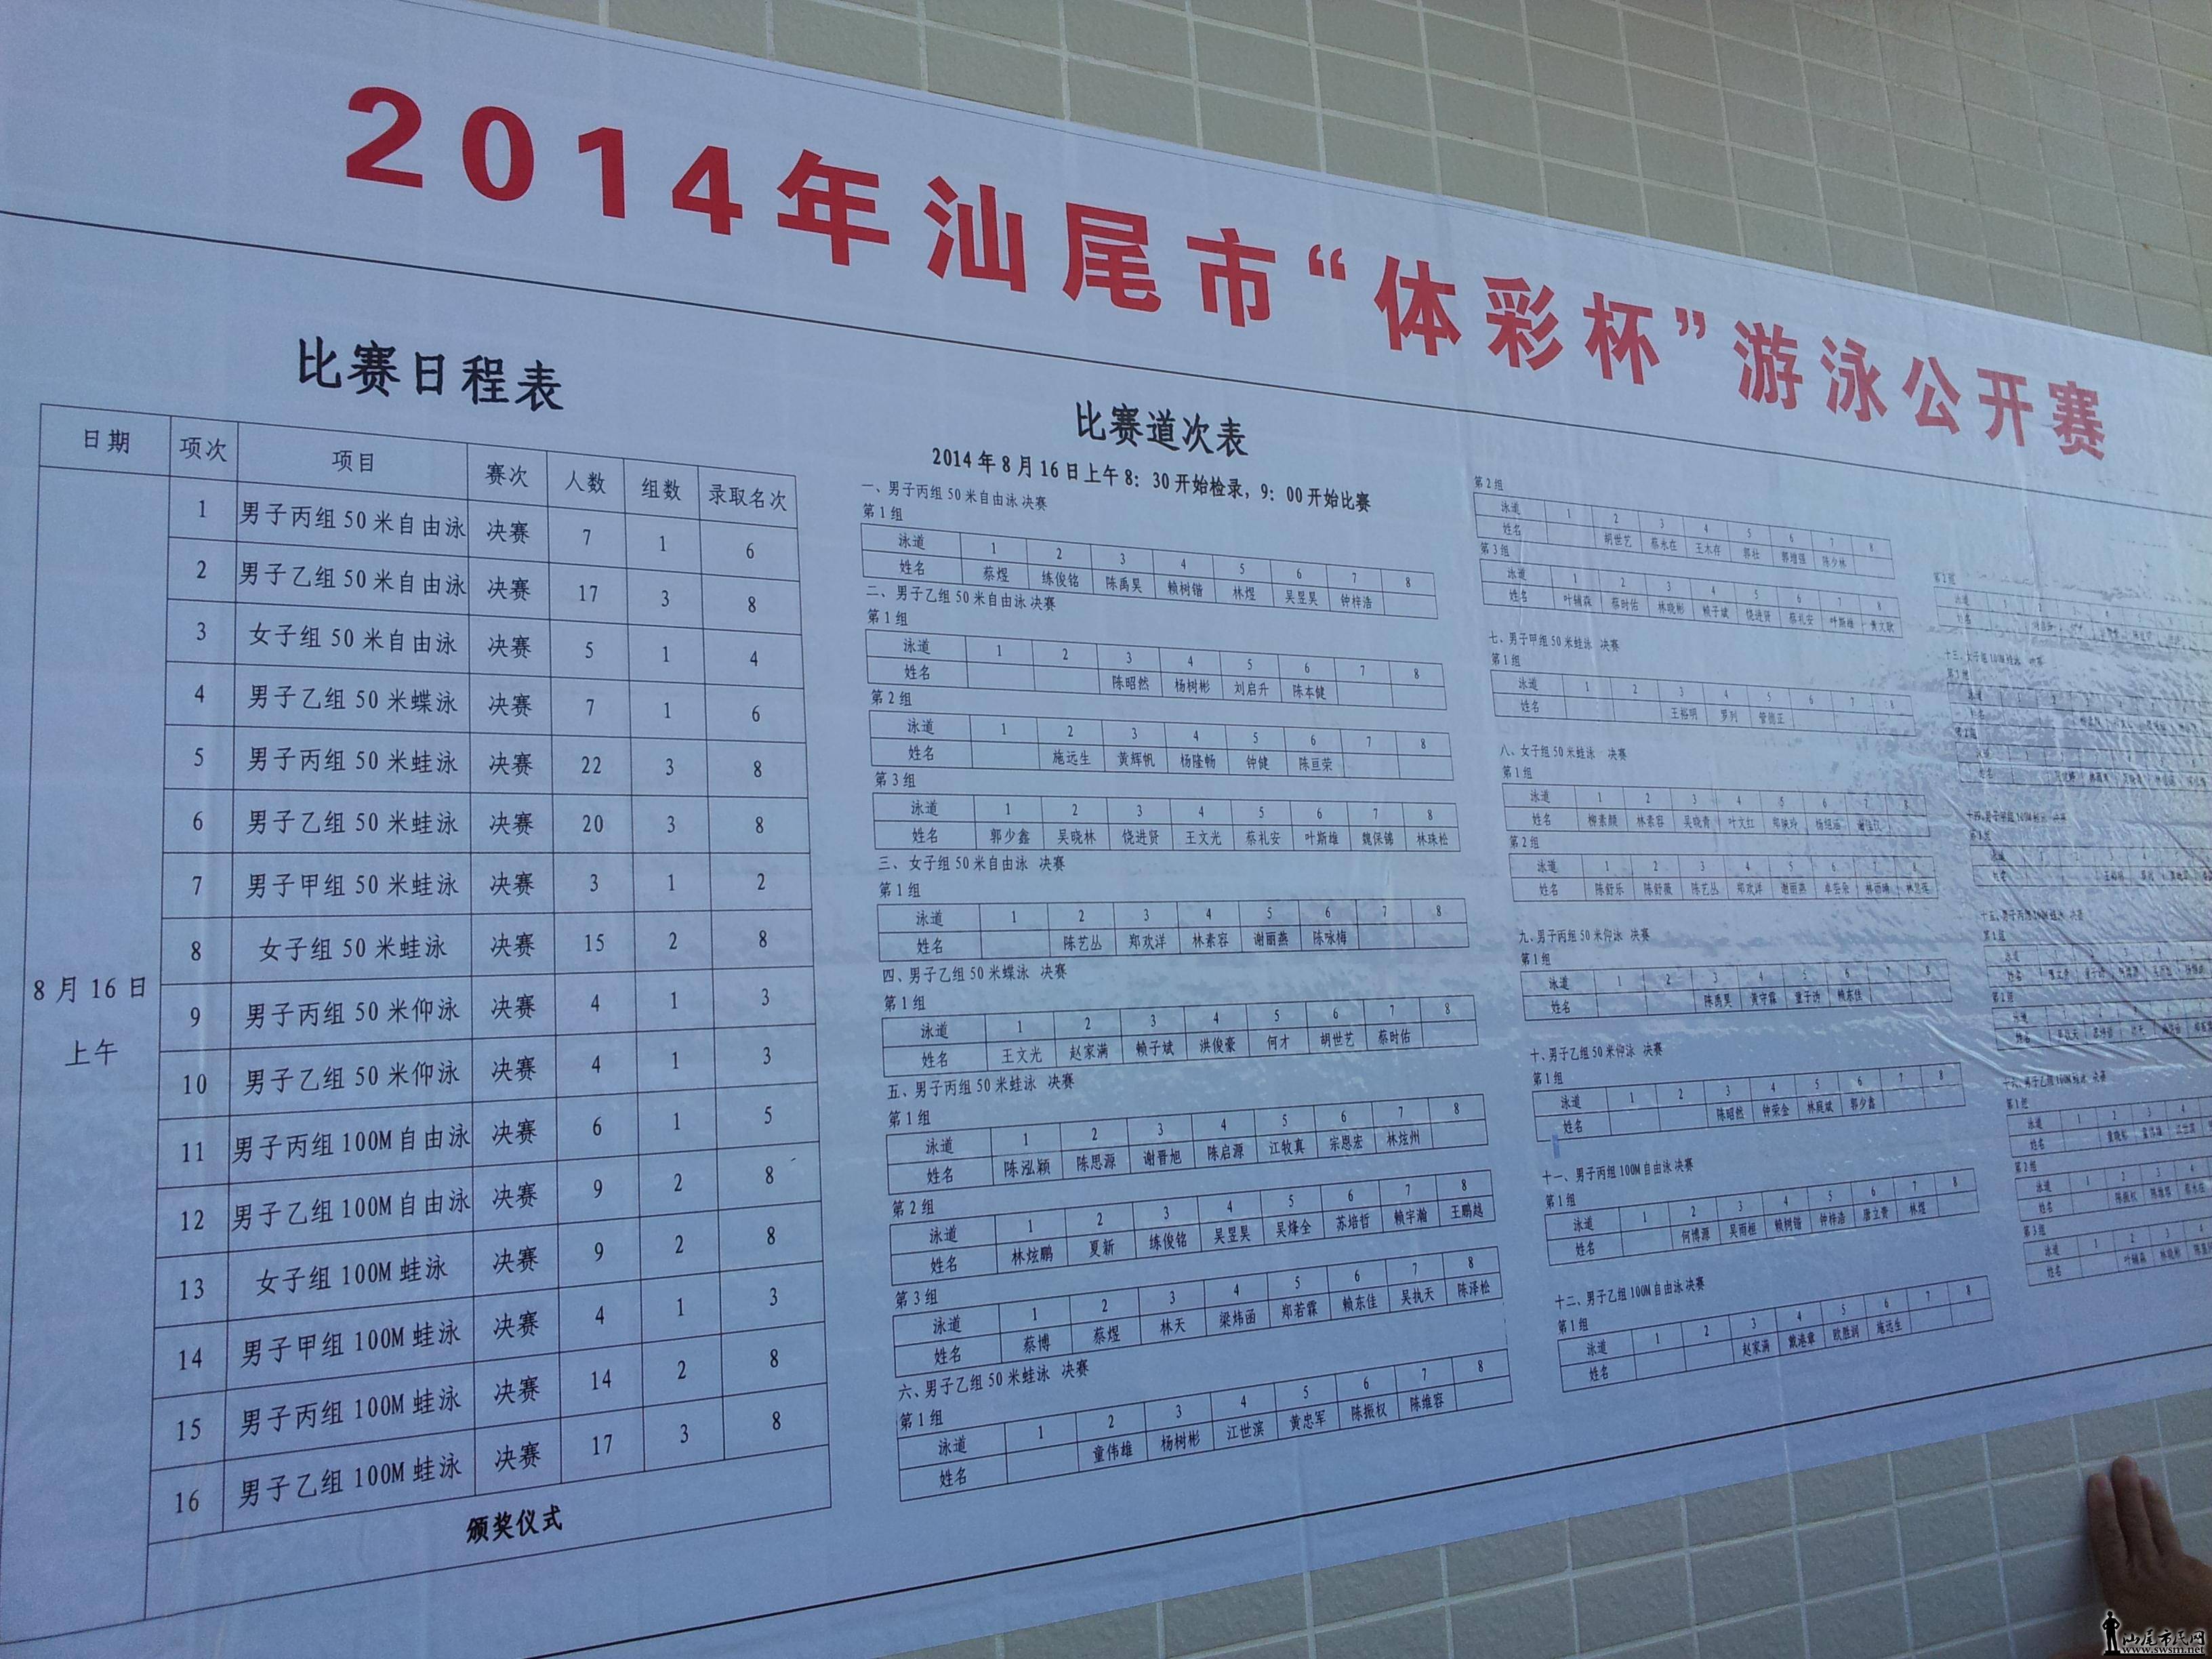 2014年汕尾市“体彩杯”游泳公开赛
比赛日程表
日期 项次 项目 赛次 人数 组数 录取名次
8月16日
上午
1 男子丙组50米自由泳 决赛 7 1 6
2 男子乙组50米自由泳 决赛 17 3 8
3 女子组50米自由泳 决赛 5 1 4
4 男子乙组50米蝶泳 决赛 7 1 6
5 男子丙组50米蛙泳 决赛 22 3 8
6 男子乙组50米蛙泳 决赛 20 3 8
7 男子甲组50米蛙泳 决赛 3 1 2
8 女子组50米蛙泳 决赛 15 2 8
9 男子丙组50米仰泳 决赛 4 1 3
10 男子乙组50米仰泳 决赛 4 1 3
11 男子丙组100M自由泳 决赛 6 1 5
12 男子乙组100M自由泳 决赛 9 2 8
13 女子组100M蛙泳 决赛 9 2 8
14 男子甲组100M蛙泳 决赛 4 1 3
15 男子丙组100M蛙泳 决赛 14 2 8
16 男子乙组100M蛙泳 决赛 17 3 8
颁奖仪式
比赛道次表
2014年8月16日上午8：30开始检录，9：00开始比赛
一、男子丙组50米自由泳 决赛
第1组
泳道 1 2 3 4 5 6 7 8
姓名 蔡煜 练俊铭 陈禹昊 赖树锴 林煜 吴昱昊 钟梓浩
二、男子乙组50米自由泳 决赛
第1组
泳道 1 2 3 4 5 6 7 8
姓名 陈昭然 杨树彬 刘启升 陈本健
第2组
泳道 1 2 3 4 5 6 7 8
姓名 施远生 黄辉帆 杨隆畅 钟健 陈亘荣
第3组
泳道 1 2 3 4 5 6 7 8
姓名 郭少鑫 吴晓林 饶进贤 王文光 蔡礼安 叶斯雄 魏保锦 林珠松
三、女子组50米自由泳 决赛
第1组
泳道 1 2 3 4 5 6 7 8
姓名 陈艺丛 郑欢洋 林素容 谢丽燕 陈咏梅
四、男子乙组50米蝶泳 决赛
第1组
泳道 1 2 3 4 5 6 7 8
姓名 王文光 赵家满 赖子斌 洪俊豪 何才 胡世艺 蔡时佑
五、男子丙组50米蛙泳 决赛
第1组
泳道 1 2 3 4 5 6 7 8
姓名 陈泓颖 陈思源 谢晋旭 陈启源 江牧真 宗恩宏 林炫州
第2组
泳道 1 2 3 4 5 6 7 8
姓名 林炫鹏 夏新 练俊铭 吴昱昊 吴烽全 苏培哲 赖宇瀚 王鹏越
第3组
泳道 1 2 3 4 5 6 7 8
姓名 蔡博 蔡煜 林天 梁炜函 郑若霖 赖东佳 吴执天 陈泽松
六、男子乙组50米蛙泳 决赛
第1组
泳道 1 2 3 4 5 6 7 8
姓名 童伟雄 杨树彬 江世滨 黄忠军 陈振权 陈维容
第2组
泳道 1 2 3 4 5 6 7 8
姓名 胡世艺 蔡永在 王木存 郭壮 郭增强 陈少林
第3组
泳道 1 2 3 4 5 6 7 8
姓名 叶辅森 蔡时佑 林晓彬 赖子斌 饶进贤 蔡礼安 叶斯雄 黄文耿
七、男子甲组50米蛙泳 决赛
第1组
泳道 1 2 3 4 5 6 7 8
姓名 王裕明 罗列 管德正
八、女子组50米蛙泳 决赛
第1组
泳道 1 2 3 4 5 6 7 8
姓名 柳素颜 林素容 吴晓青 叶文红
第2组
泳道 1 2 3 4 5 6 7 8
姓名 陈舒乐 陈舒薇 陈艺丛 郑欢洋 谢丽燕
九、男子丙组50米仰泳 决赛
第1组
泳道 1 2 3 4 5 6 7 8
姓名 陈禹昊 黄守霖 童子汤 赖东佳
十、男子乙组50米仰泳 决赛
第1组
泳道 1 2 3 4 5 6 7 8
姓名 陈昭然 钟荣金 林庭斌 郭少鑫
十一、男子丙组100M自由泳 决赛
第1组
泳道 1 2 3 4 5 6 7 8
姓名 何博源 吴雨桓 赖树锴 钟梓浩 唐立贵 林煜
十二、男子乙组100M自由泳 决赛
第1组
泳道 1 2 3 4 5 6 7 8
姓名 赵家满 戴港章 欧胜润 施远生
第2组
十三、女子组100M蛙泳 决赛
十五、男子丙组100M蛙泳 决赛
第1组
第2组
十六、男子乙组100M蛙泳 决赛
第1组
泳道 1 2 3 4
第2组
泳道 1 2 3 4
姓名 陈振权 陈维容 蔡永在
第3组
泳道 1 2 3 4
姓名 叶辅森 林晓彬
汕尾市民网
www.swsm.net